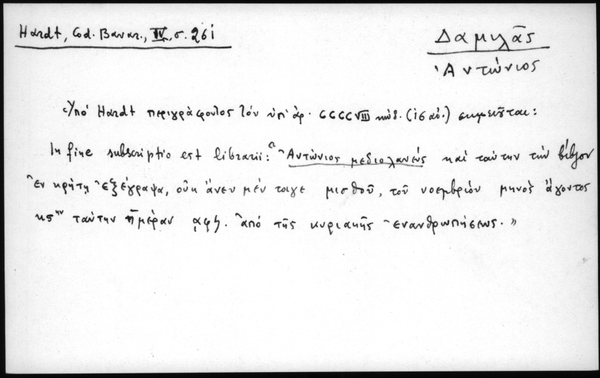 Hardt, Cod. Bavar., IV, σ. 261
Δαμιλᾶς
Ἀντώνιος
Ὑπό Hardt περιγράφοντος τόν ὑπ' ἀρ. CCCCVIII κώδ. (ις αἰ.) σημειοῦται:
In fine subscriptio est librarii: "Ἀντώνιος μεδιολανεύς καί ταύτην τήν βίβλον
ἐν κρήτῃ ἐξέγραψα, οὐκ ἄνευ μέν τοιγε μισθοῦ, τοῦ νοεμβρίου μηνός ἄγοντος
ταύτην ἡμέραν ἀπό τῆς κυριακῆς ἐνανθρωπήσεως."